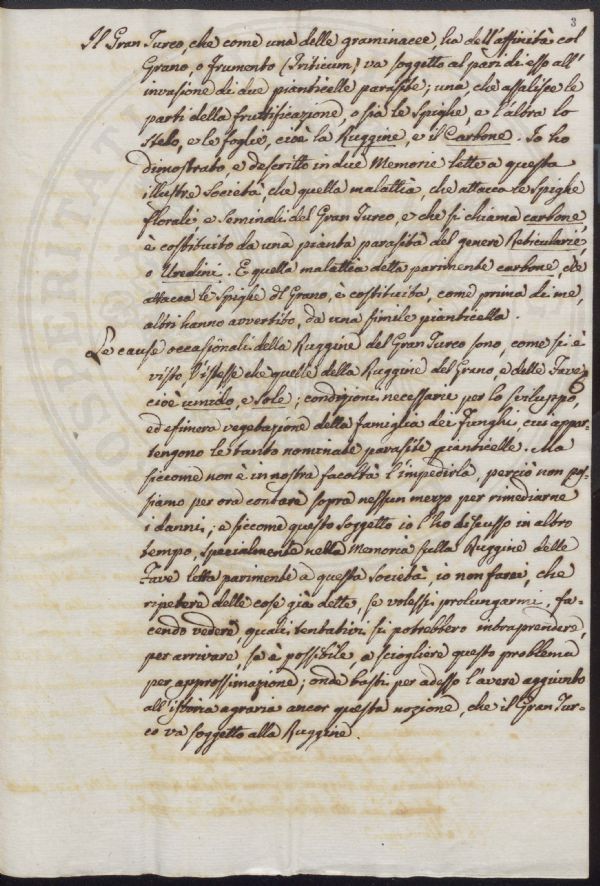 3
Il Gran Turco, che come una delle graminacee, ha dell'affinità col
Grano, o frumento (Triticum) va soggetto al pari di esso all'
invasione di due pianticelle parasite; una, che assalisce le
parti della fruttificazione, o sia le Spighe, e l'altra lo
Stelo, e le foglie, cioè la Ruggine, e il Carbone. Io ho
dimostrato, e descritto in due Memorie lette a questa
illustre Società, che quella malattia, che attacca le Spighe
florali e Seminali del Gran Turco, e che si chiama carbone,
è costituito da una pianta parasita del genere Reticularie
o Uredini. E quella malattia detta parimente carbone, che
attacca le Spighe del Grano, è costituita, come prima di me,
altri hanno avvertito, da una simile pianticella.
Le cause occasionali della Ruggine del Gran Turco sono, come si è
visto, l'istesse che quelle della Ruggine del Grano, e delle Fave
cioè umido, e Sole; condizioni necessarie per lo sviluppo,
ed efimera vegetazione della famiglia dei Funghi, cui appar-
tengono le tanto nominate parasite pianticelle. Ma
siccome non è in nostra facoltà l'impedirla, perciò non pos-
siamo per ora contare sopra nessun mezzo per rimediarne
i danni; e siccome questo soggetto io l'ho discusso in altro
tempo, specialmente nella Memoria sulla Ruggine delle
Fave letta parimente a questa Società, io non farei, che
ripetere delle cose già dette, se volessi prolungarmi, fa-
cendo vedere quali tentativi si potrebbero intraprendere,
per arrivare, se è possibile, a sciogliere questo problema
per approssimazione; onde basti per adesso l'avere aggiunto
all'istoria agraria ancor questa nozione, che il Gran Tur-
co va soggetto alla Ruggine.